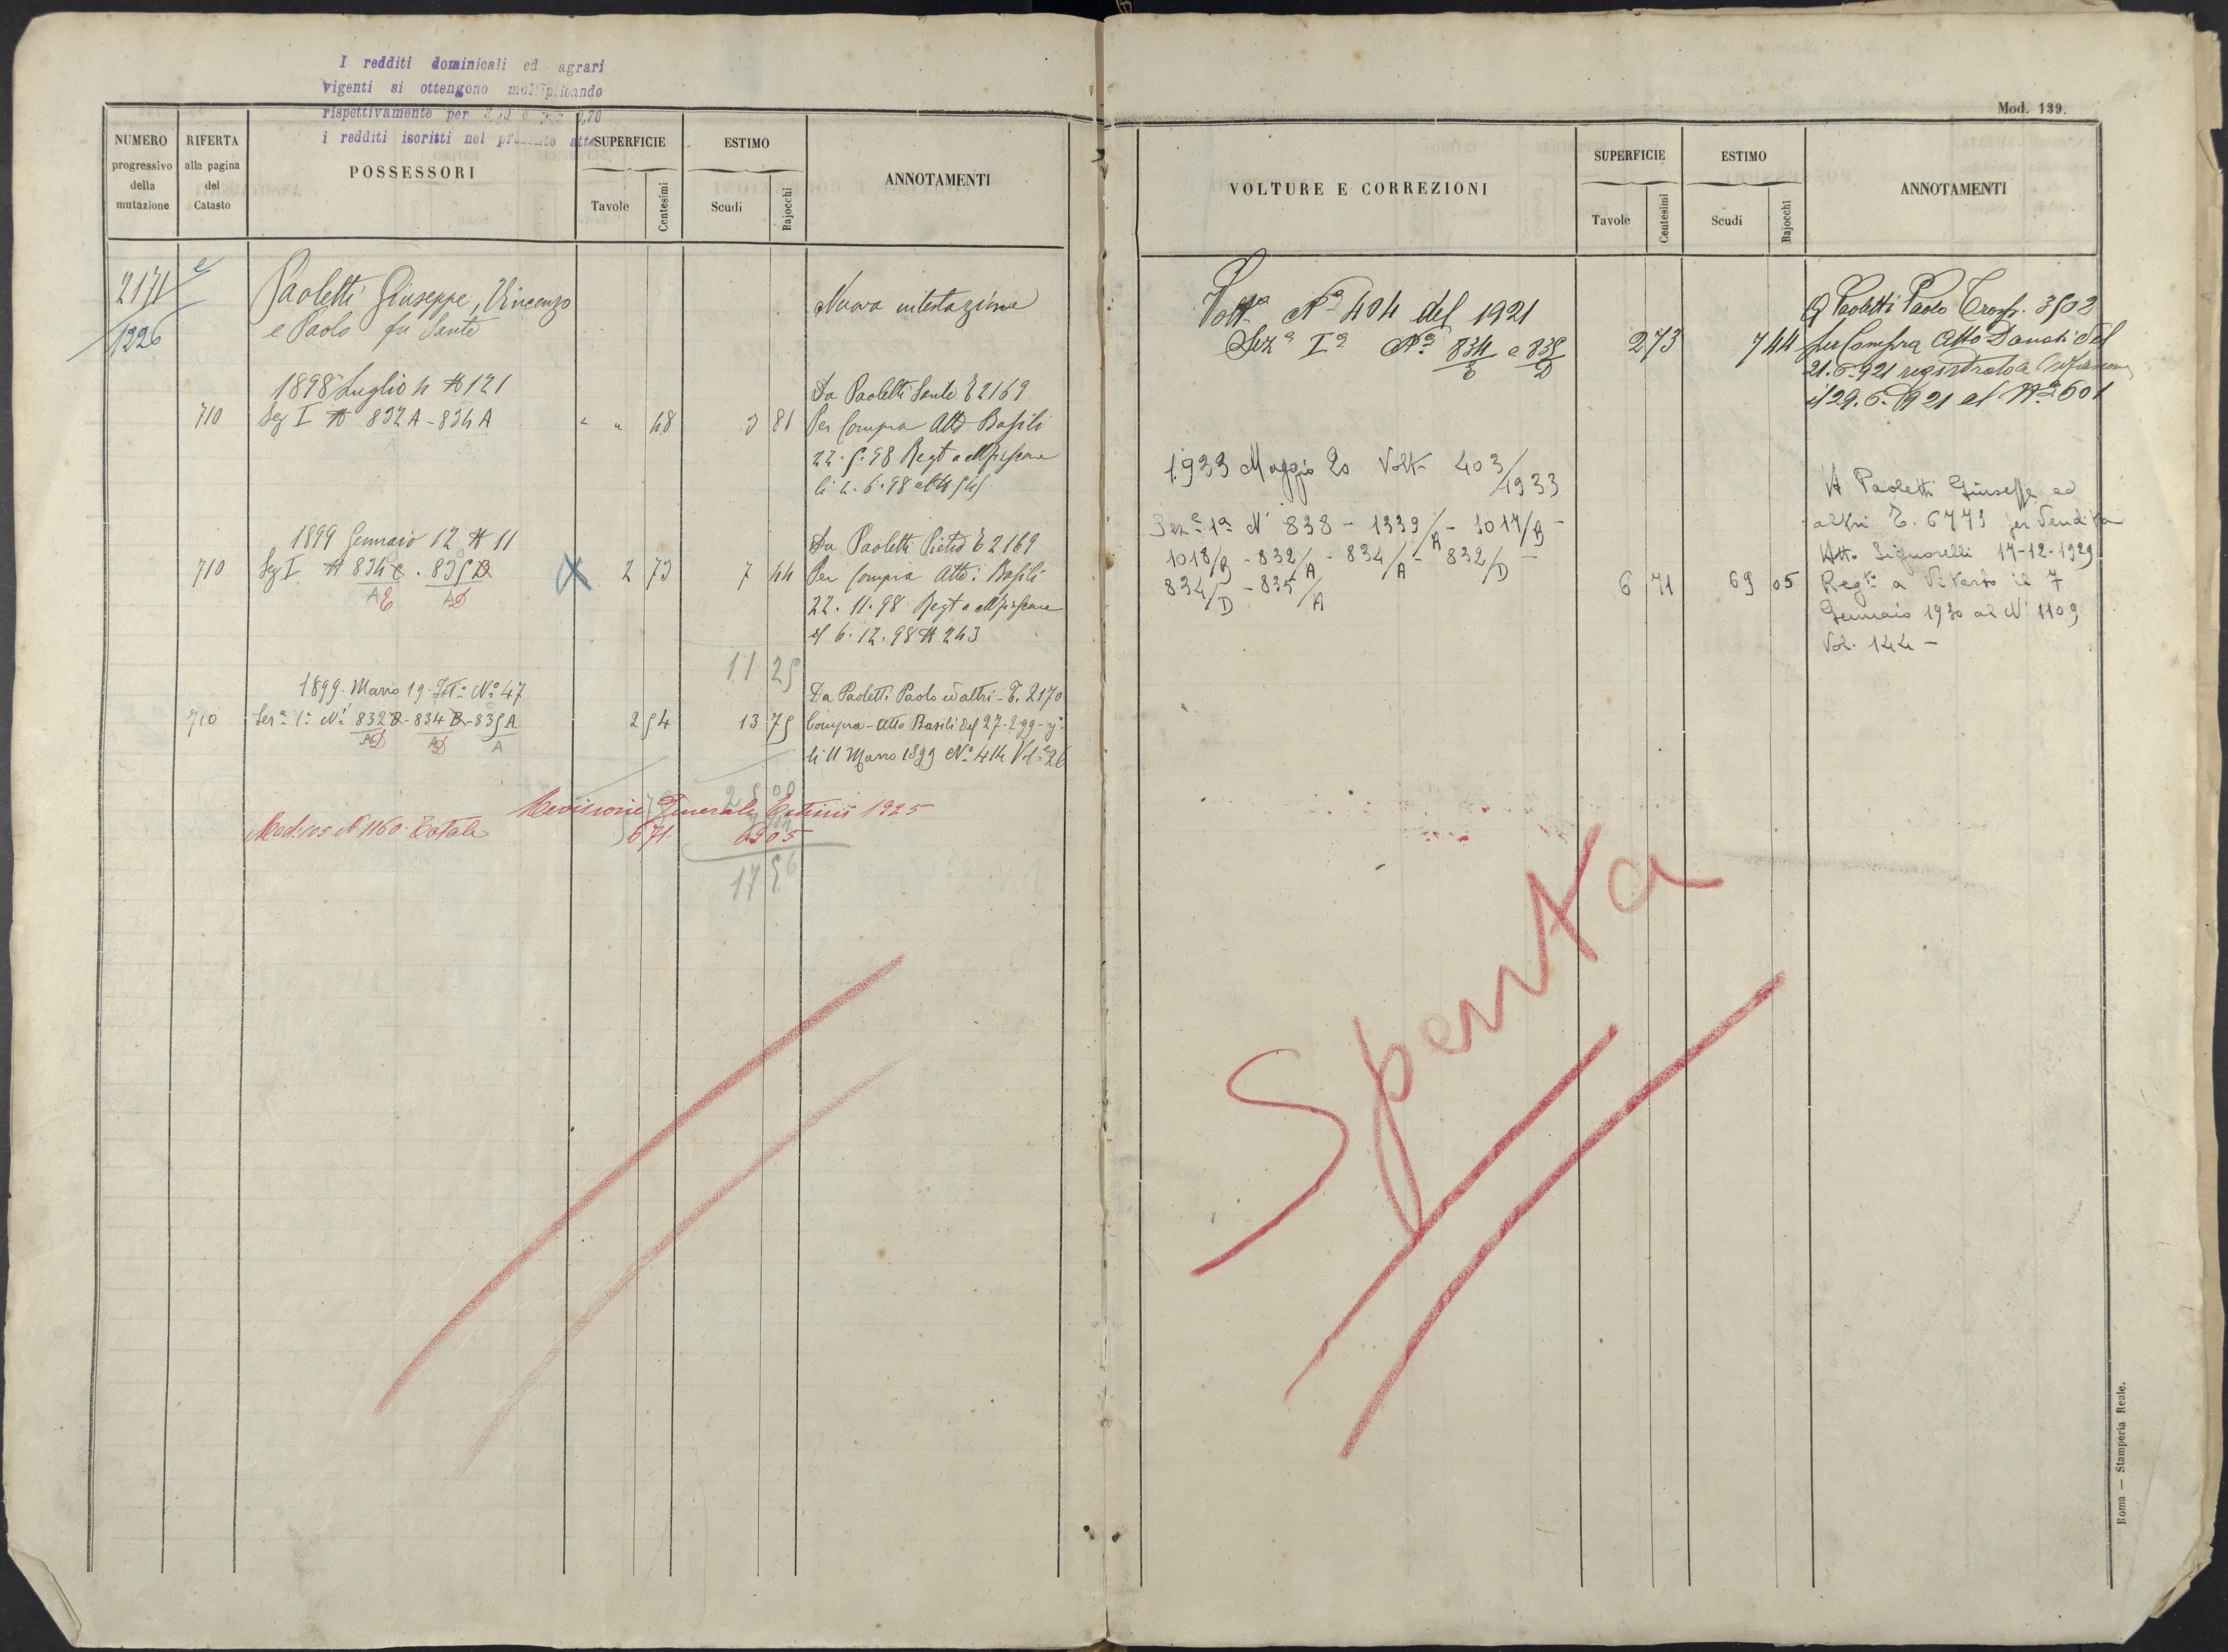 I redditi dominicali ed agrari
vigenti si ottengono moltiplicando
rispettivamente per
i redditi iscritti nel presente atto
NUMERO
progressivo
della
mutazione
RIFERTA
alla pagina
del
Catasto
POSSESSORI
SUPERFICIE
Tavole
Centesimi
ESTIMO
Scudi
Bajocchi
ANNOTAMENTI
2171
1226
Paoletti Giuseppe, Vincenzo
e Paolo fu Sante
Nuova intestazione
1898 Luglio 4 N 121
710 Sez I N 832 A - 834 A " " 48 3 81
Da Paoletti Sante E 2169
Per Compra Atto Basili
22.5.98 Regt a
li 4.6.98 al N 545
1899 Gennaio 12 N 11
710 Sez I N 834 C . 835 D X 2 73 7 44
AE AD
Da Paoletti Pietro E 2169
Per Compra Atto: Basili
22.11.98 Regt a
il 6.12.98 N 243
11 25
1899. Marzo 19. N.o 47
710 Sez.a 1.a N.i 832 B - 834 B - 835 A 2 54 13 75
AD AD A
Da Paoletti Paolo ed altri - T. 2170
Compra - Atto Basili del 27-2-99 -
li 11 Marzo 1899 N.o 414 Vol. 26
25 00
Revisione Generale Estimi 1925
Mod. 105 N 1160. Totale 6 71 69 05
17 56
Mod. 139.
VOLTURE E CORREZIONI
SUPERFICIE
Tavole
Centesimi
ESTIMO
Scudi
Bajocchi
ANNOTAMENTI
Volt.a N.o 404 del 1921
Sez.a I.a N.i 834/E e 835/D 2 73 7 44
A Paoletti Paolo Trasp. 3502
per Compra Atto Donati del
21.6.921 registrato a
il 29.6.1921 al N.o 601
1933 Maggio 20 Volt. 403/1933
Sez.e 1a N.i 838 - 1339/A - 1017/B -
1018/B - 832/A - 834/A - 832/D -
834/D - 835/A 6 71 69 05
A Paoletti Giuseppe ed
altri T. 6773 per Vendita
Atto Signorelli 17-12-1929
Reg.to a Viterbo il 7
Gennaio 1930 al N.o 1109
Vol. 144 -
Spenta
Roma — Stamperia Reale.